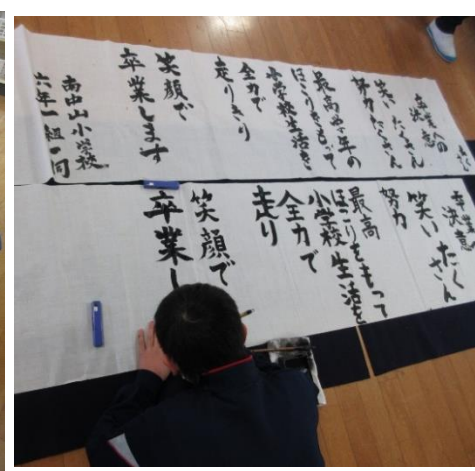 卒業への
決意
笑いたくさん
努力たくさん
最高学年の
ほこりをもって
小学校生活を
全力で
走りきり
笑顔で
卒業します
南中山小学校
六年一組一同
卒業
決意
笑いたくさん
努力
最高
ほこりをもって
小学校生活を
全力で
走り
笑顔で
卒業し